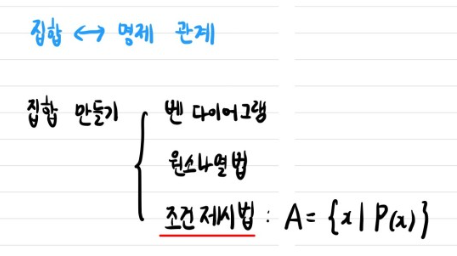 집합 ↔ 명제 관계
집합 만들기
벤 다이어그램
원소나열법
조건제시법 : A = {x | P(x)}